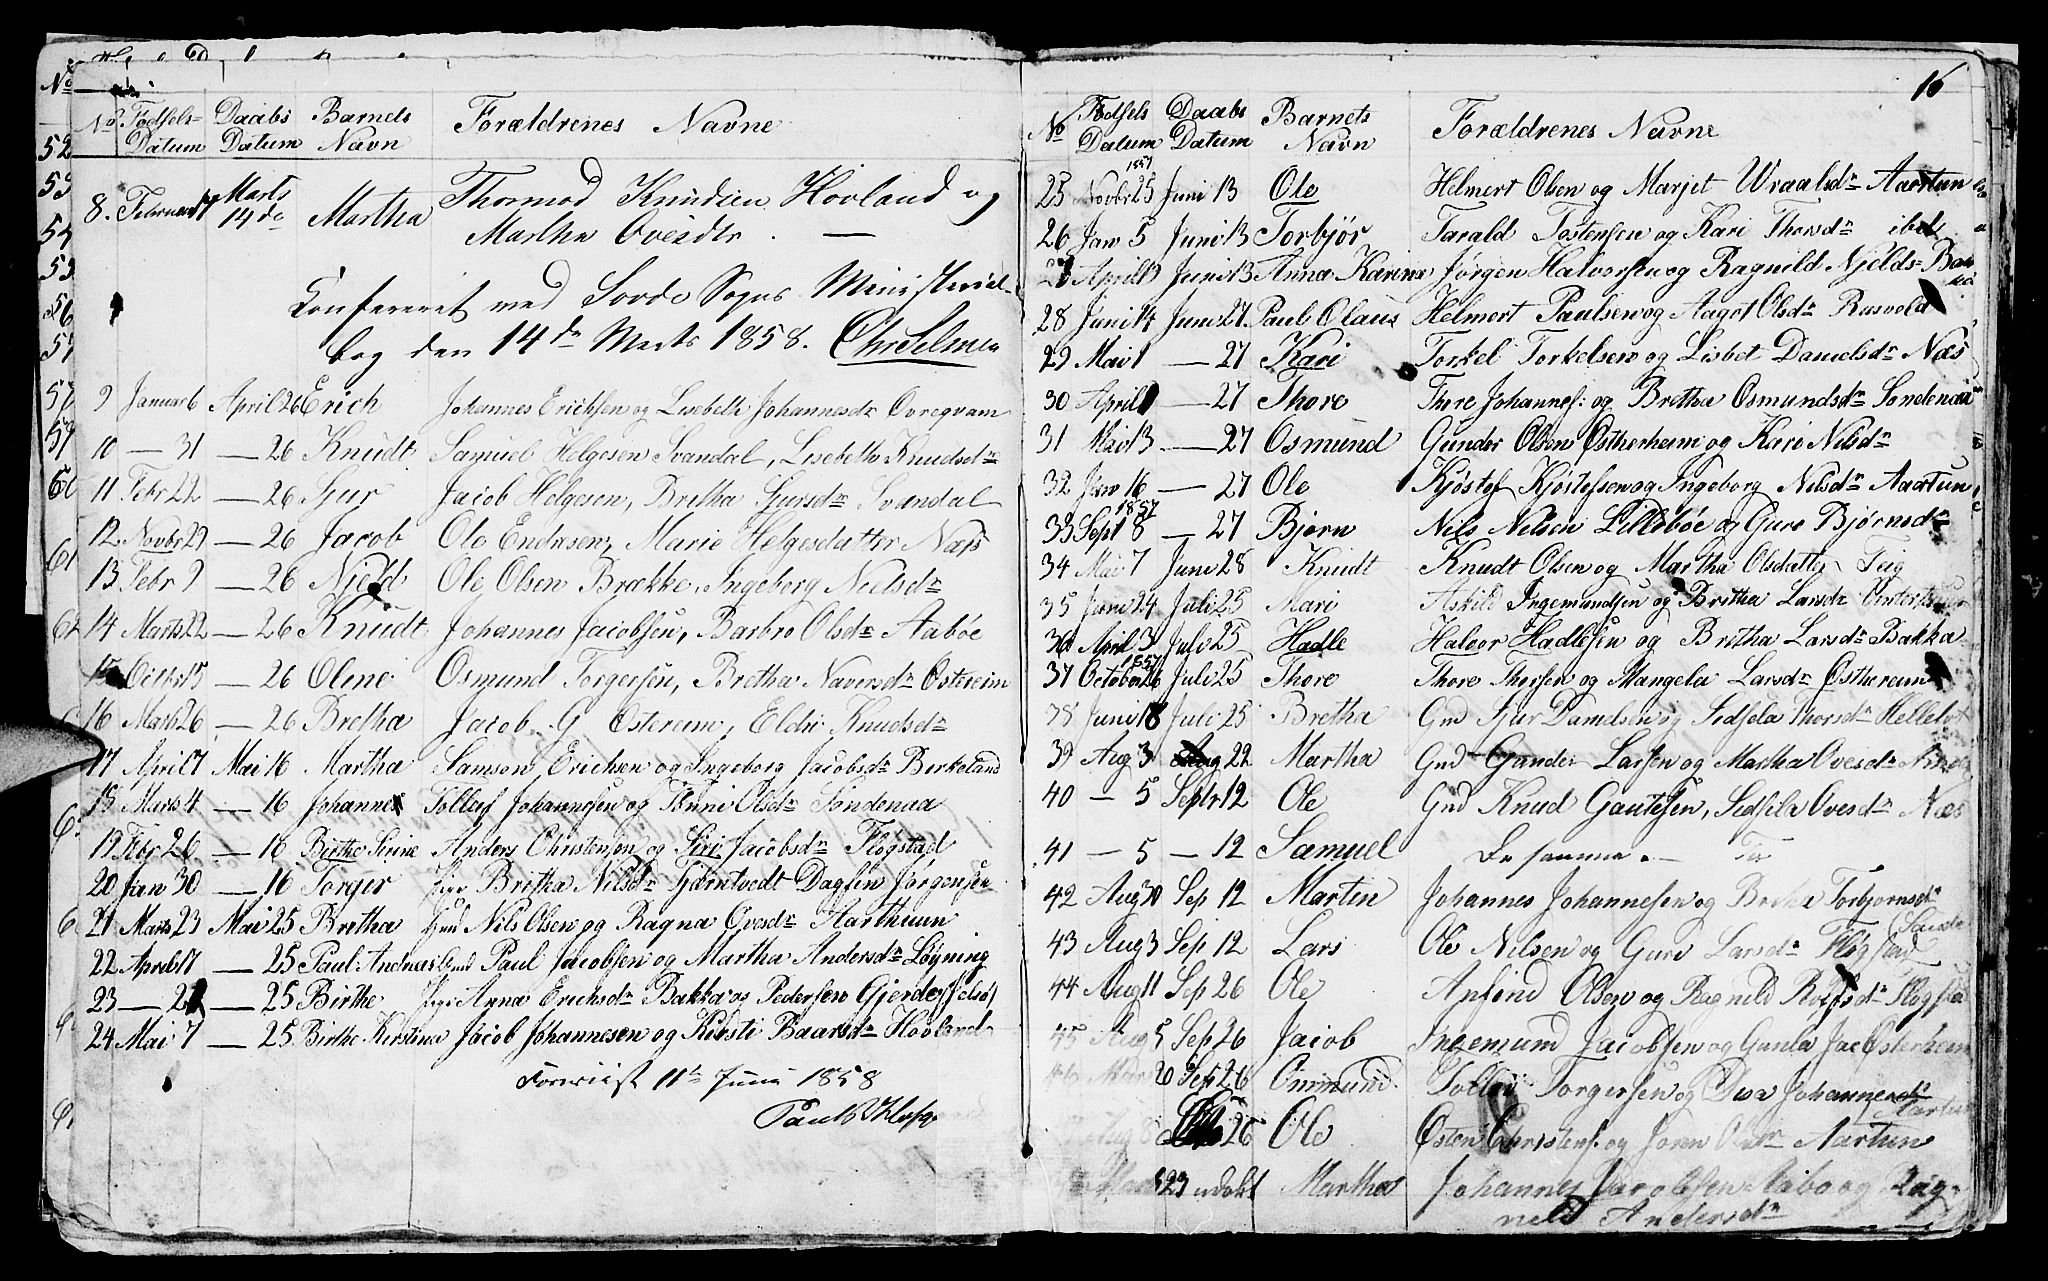 No Fødsels- Daabs Barnets Forældrenes Navne
Datum Datum Navn
8. Februar Marts 14de Martha Thormod Knudsen Hovland og
Martha Ovesdtr. —
Confereret med Sovde Sogns Ministerial-
bog den 14de Marts 1858. Chr Selmer
9 Januar 6 April 26 Erich Johannes Erichsen og Lisebeth Johannesdr Øvreqvam
10 — 31 — 26 Knudt Samuel Helgesen Svandal, Lisebeth Knudsdr
11 Febr 22 — 26 Sjur Jacob Helgesen, Bretha Sjursdr Svandal
12 Novbr 29 — 26 Jacob Ole Endresen, Marie Helgesdatter Næss
13 Febr 9 — 26 Njeld Ole Olsen Brække, Ingeborg Nielsdr
14 Marts 22 — 26 Knudt Johannes Jacobsen, Barbro Olsdr Aabøe
15 Octbr 15 — 26 Oline Osmund Torgersen, Bretha Naversdr Østereim
16 Marts 26 — 26 Bretha Jacob G Ostereim, Eldri Knudsdr
17 April 7 Mai 16 Martha Samson Erichsen og Ingeborg Jacobsdr Birkeland
18 Marts 4 — 16 Johannes Tollef Johannesen og Olsdr Søndenaa
19 Febr 26 — 16 Birthe Serine Anders Christensen og Siri Jacobsdr Fløgstad
20 Jan 30 — 16 Torger Pige Britha Nilsdr Tjerntvedt Dagfin Jørgensen
21 Marts 23 Mai 25 Bretha Gmd Nils Olsen og Ragna Ovesdr Aarthuun
22 April 17 — 25 Paul Andreas Gmd Paul Jacobsen og Martha Andersdr Løyning
23 — 25 Birthe Pige Anna Erichsdr Bakka og Pedersen Gjerde
24 Mai 7 — 25 Birthe Kerstina Jacob Johannesen og Kirsti Baarsdr Hovland
11te Juni 1858
16
No Fødsels Daabs Barnets Forældrenes Navne
Datum Datum Navn
25 1857 Novbr 25 Juni 13 Ole Helmert Olsen og Marjet Wraalsdr Aartun
26 Jan 5 Juni 13 Torbjør Tarald Tostensen og Kari Thorsdr ibd
April 13 Juni 13 Anna Karine Jørgen Halvorsen og Ragnild Njelds-
28 Juni 14 Juni 27 Paul Olaus Helmert Paulsen og Aagot Olsdr Rusvold
29 Mai 1 — 27 Kari Torkel Torkelsen og Lisbet Danielsdr Næs
30 April — 27 Thore Thore Johannes: og Bretha Osmundsdr Søndenaa
31 Mai 13 — 27 Osmund Gunder Olsen Østherheim og Kari Nilsdr
32 Jan 16 — 27 Ole Kjøstef Kjøstefsen og Ingeborg Nilsdr Aartun
33 1857 Sept 8 — 27 Bjørn Nils Nilsen Lillebøe og Guro Bjørnsdr
34 Mai 7 Juni 28 Knudt Knudt Olsen og Martha Olsdatter Teig
35 Juni 24 Juli 25 Mari Askild Ingemundsen og Britha Larsdr
36 April 3 Juli 25 Hadle Halvor Hadlesen og Britha Larsdr Bakka
37 1857 October 26 Juli 25 Thore Thore Thorsen og Mangela Larsdr Østhereim
38 Juni 18 Juli 25 Bretha Gmd Sjur Danielsen og Sidsela Thorsdr
39 Aug 3 Aug 22 Martha Gmd Gunder Larsen og Martha Ovesdr
40 — 5 Septr 12 Ole Gmd Knud Gautesen, Sidsela Ovesdr Næs
41 — 5 — 12 Samuel De samme. —
42 Aug 30 Sep 12 Martin Johannes Johannesen og Torbjornsdr
(Sande
43 Aug 3 Sep 12 Lars Ole Nilsen og Guri Larsdr Fløgstad
44 Aug 11 Sep 26 Ole Anfind Olsen og Ragnild
45 Aug 5 Sep 26 Jacob Ingemund Jacobsen og Gunla Østerheim
Sep 26 Ommund Torgersen og Johannesdr
Aartun
Aug 8 26 Ole Østen Christens. og Aartun
23 Martha Johannes Jacobsen Aabo og Rag-
nild Andersdr